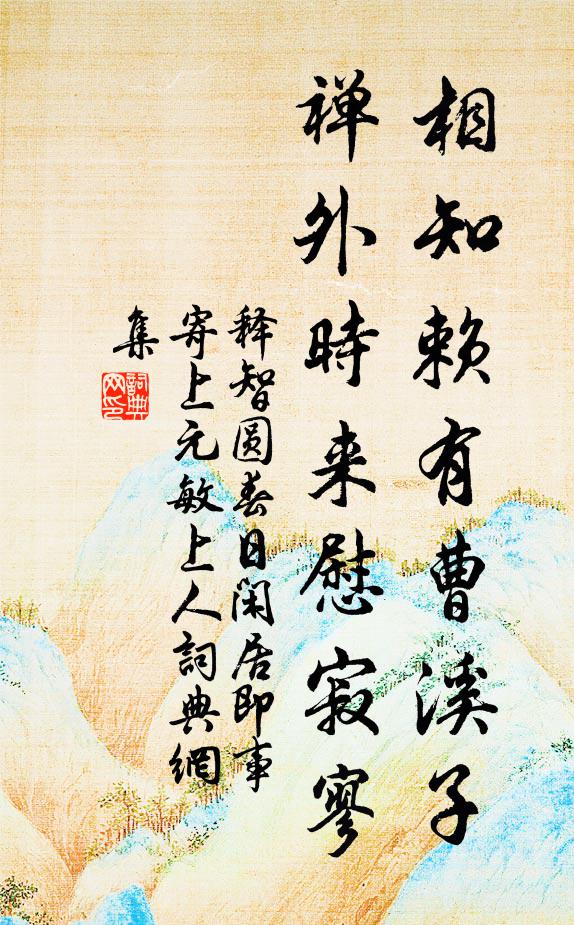 相知賴有曹溪子
禅外時来慰寂寥
释智圆春日閑居即事
寄上元敏上人詞典網
集
詞典网印